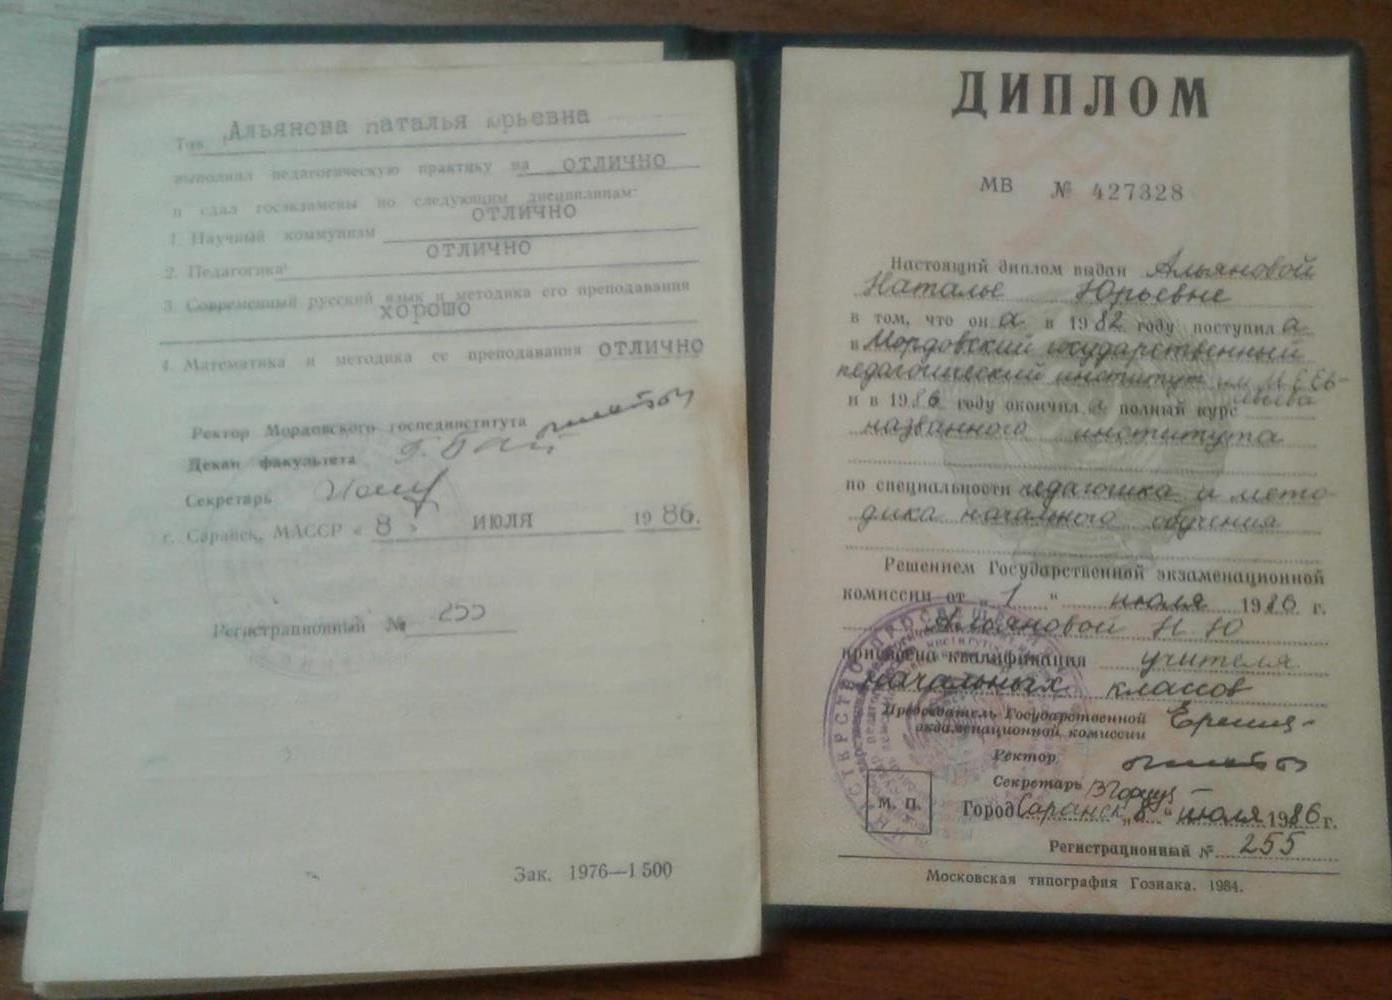 Тов. Альянова Наталья Юрьевна
выполнил педагогическую практику на отлично
и сдал госэкзамены по следующим дисциплинам:
1. Научный коммунизм отлично
2. Педагогика отлично
3. Современный русский язык и методика его преподавания
хорошо
4. Математика и методика ее преподавания отлично
Ректор Мордовского госпединститута
Декан факультета
Секретарь
г. Саранск, МАССР «8» июля 1986.
Регистрационный № 255
Зак. 1976—1 500
ДИПЛОМ
МВ № 427328
Настоящий диплом выдан Альяновой
Наталье Юрьевне
в том, что она в 1982 году поступила
в Мордовский государственный
педагогический институт им М.Е.Ев-
севьева
и в 1986 году окончила полный курс
названного института
по специальности педагогика и мето-
дика начального обучения
Решением Государственной экзаменационной
комиссии от „1" июля 1986 г.
Альяновой Н.Ю
присвоена квалификация учителя
начальных классов
Председатель Государственной
экзаменационной комиссии
Ректор
Секретарь
М. П.
Город Саранск „8" июля 1986 г.
Регистрационный № 255
Московская типография Гознака. 1984.